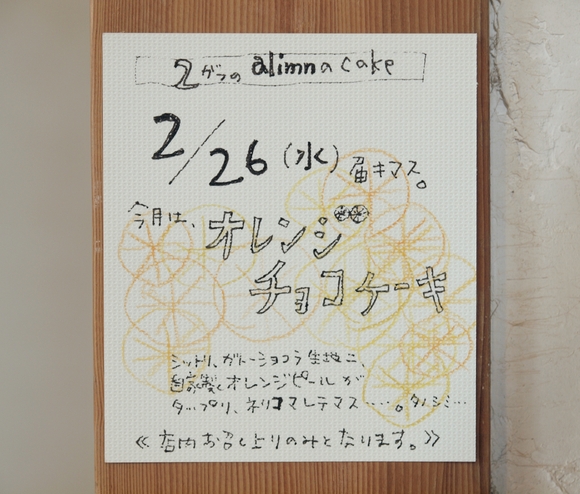 2がつの alimna cake
2/26(水)届キマス。
今月は、オレンジ
チョコケーキ
シットリ、ガトーショコラ生地ニ、
自家製オレンジピールガ
タップリ、ネリコマレテマス……。タノシミ…
《店内お召し上りのみとなります。》